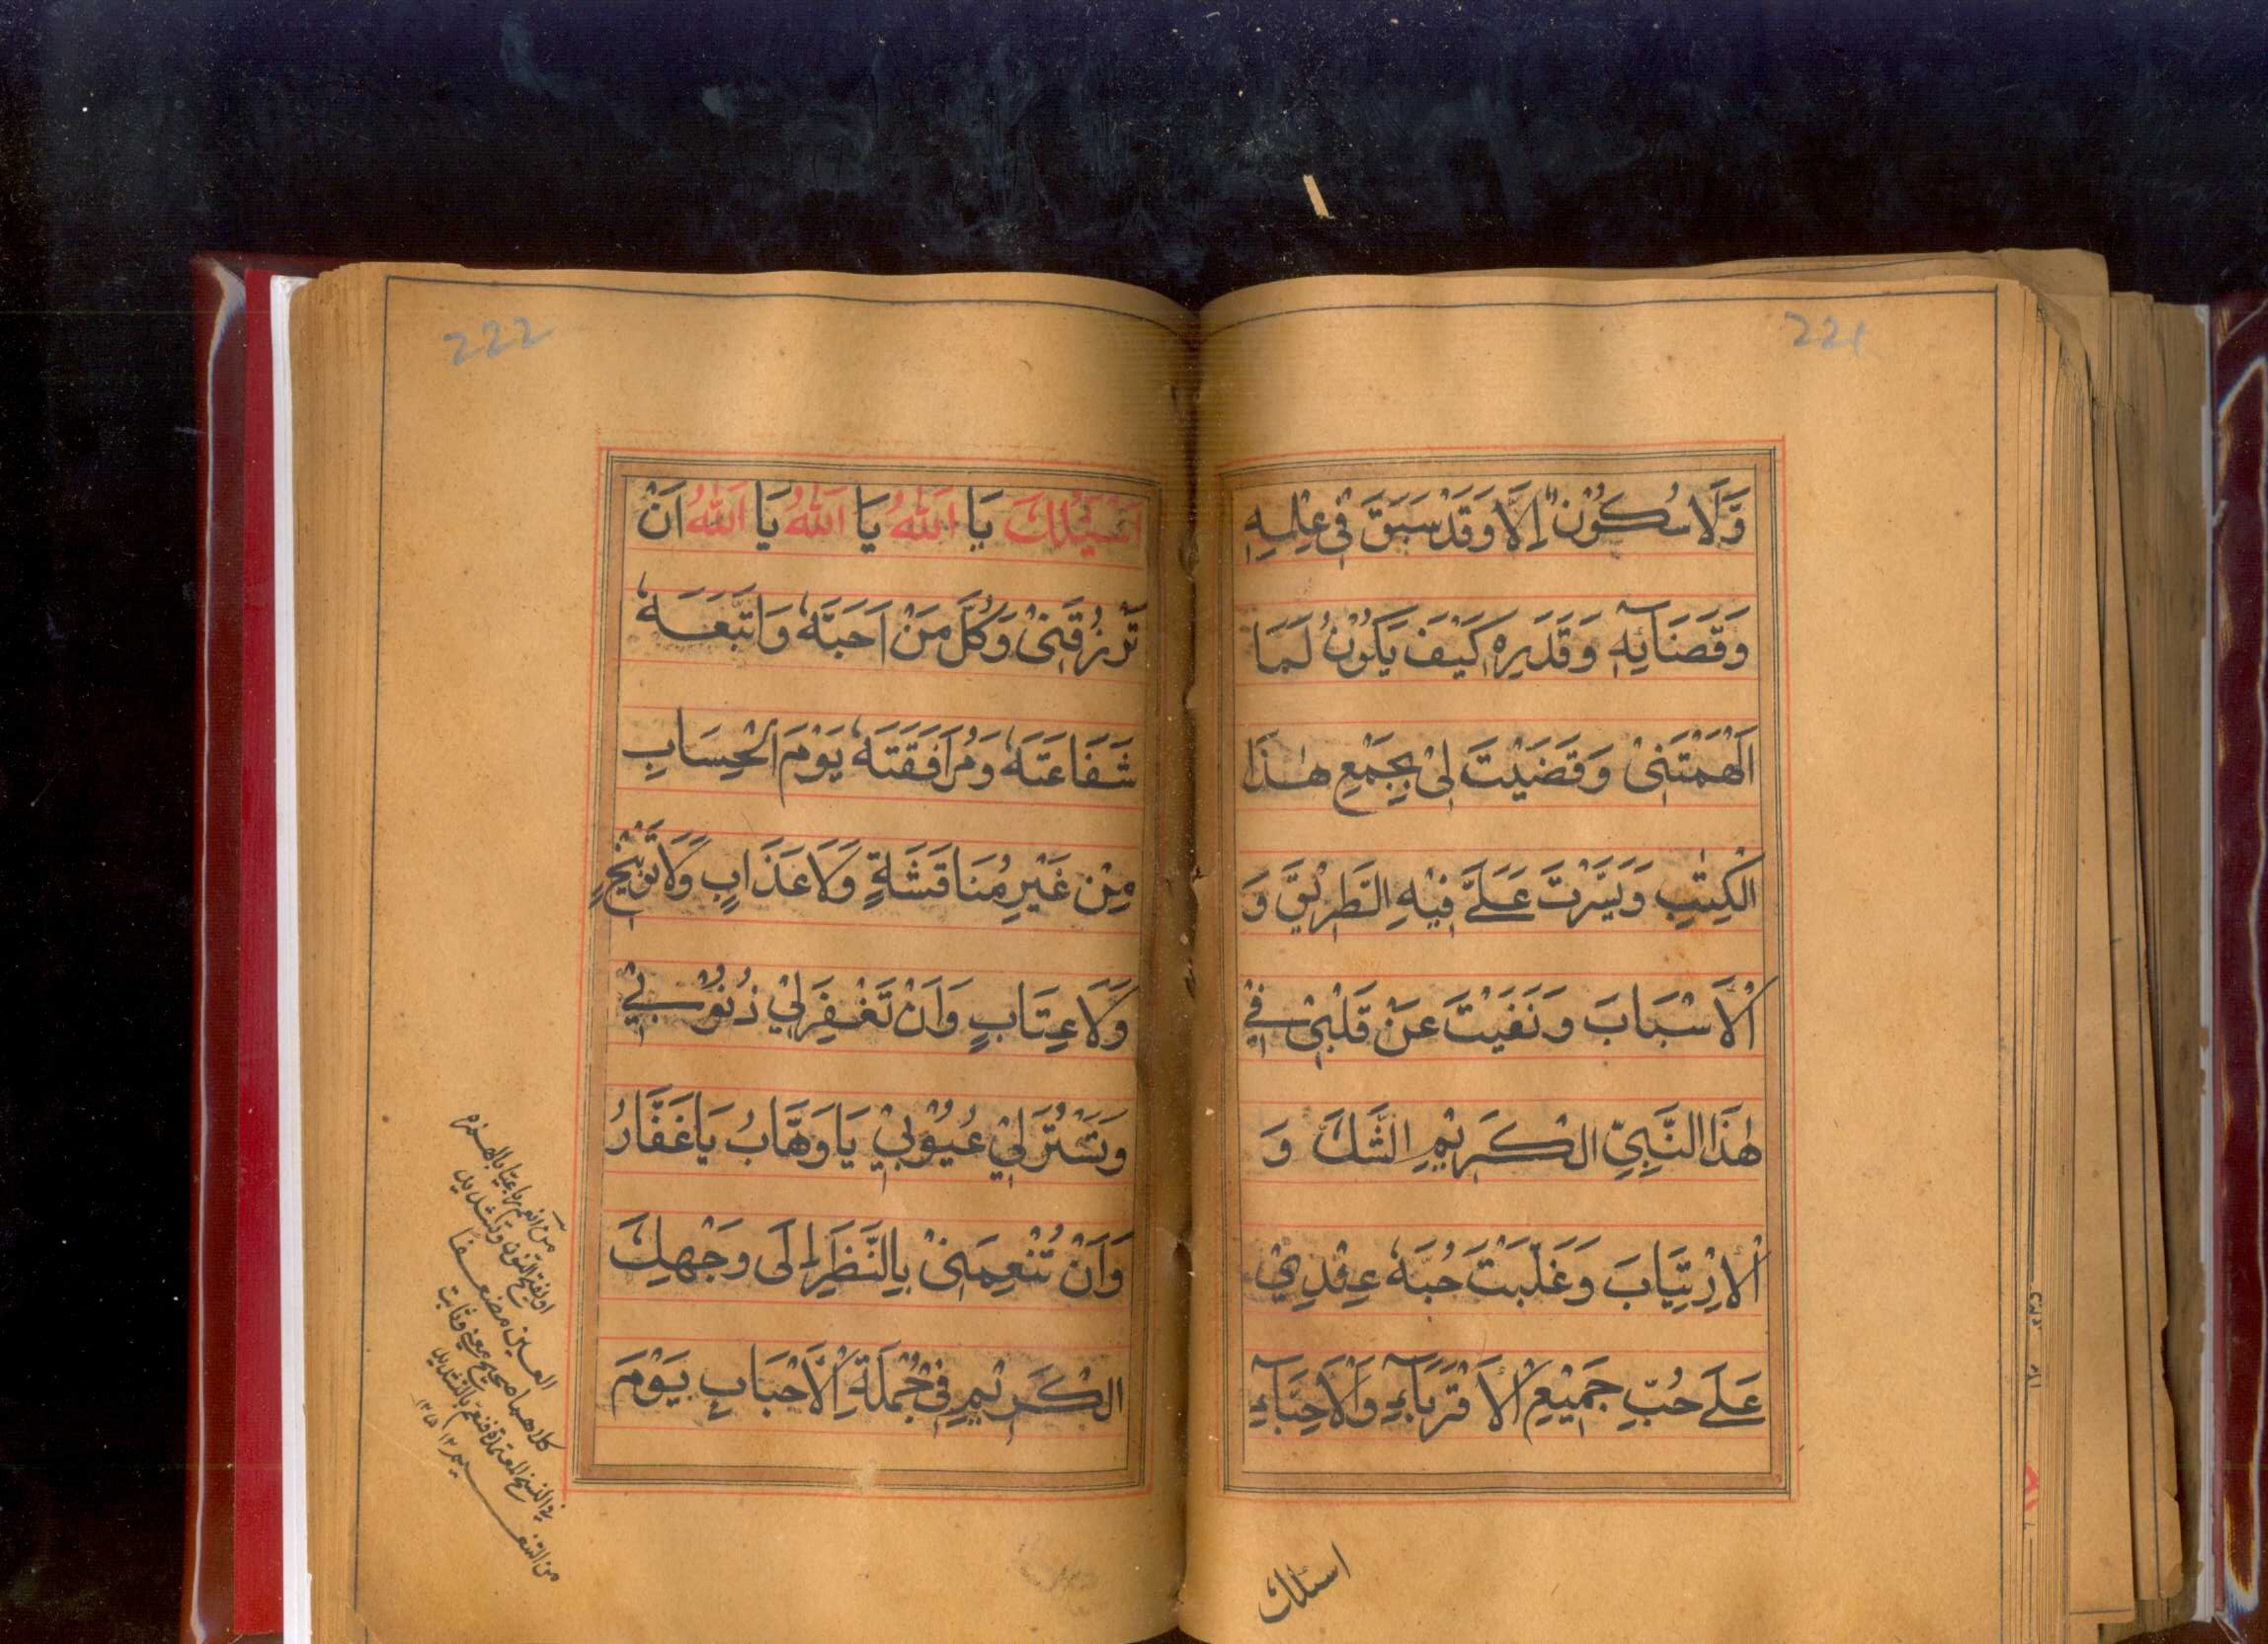 221
وَّلَا سُكُوْنٍ اِلَّا وَقَدْ سَبَقَ فِيْ عِلْمِهٖ
وَقَضَآئِهٖ وَقَدَرِهٖ كَيْفَ يَكُوْنُ لَمَا
اَلْهَمْتَنِيْ وَقَضَيْتَ لِيْ بِجَمْعِ هٰذَا
الْكِتٰبِ وَيَسَّرْتَ عَلَيَّ فِيْهِ الطَّرِيْقَ وَ
الْاَسْبَابَ وَنَفَيْتَ عَنْ قَلْبِيْ فِيْ
هٰذَا النَّبِيِّ الْكَرِيْمِ الشَّكَّ وَ
الْاِرْتِيَابَ وَغَلَّبْتَ حُبَّهٗ عِنْدِيْ
عَلٰى حُبِّ جَمِيْعِ الْاَقْرِبَآءِ وَالْاَحِبَّآءِ
اسئلك
222
اَسْئَلُكَ يَا اَللّٰهُ يَا اَللّٰهُ يَا اَللّٰهُ اَنْ
تَرْزُقَنِيْ وَكُلَّ مَنْ اَحَبَّهٗ وَاتَّبَعَهٗ
شَفَاعَتَهٗ وَمُرَافَقَتَهٗ يَوْمَ الْحِسَابِ
مِنْ غَيْرِ مُنَاقَشَةٍ وَّلَا عَذَابٍ وَّلَا تَوْبِيْخٍ
وَّلَا عِتَابٍ وَاَنْ تَغْفِرَ لِيْ ذُنُوْبِيْ
وَتَسْتُرَ لِيْ عُيُوْبِيْ يَا وَهَّابُ يَا غَفَّارُ
وَاَنْ تُنْعِمَنِيْ بِالنَّظَرِ اِلٰى وَجْهِكَ
الْكَرِيْمِ فِيْ جُمْلَةِ الْاَحْبَابِ يَوْمَ
من انعم رباعيا بالهمزه
او بفتح النون وتشديد
العين مضعفا
كلاهما صحيح